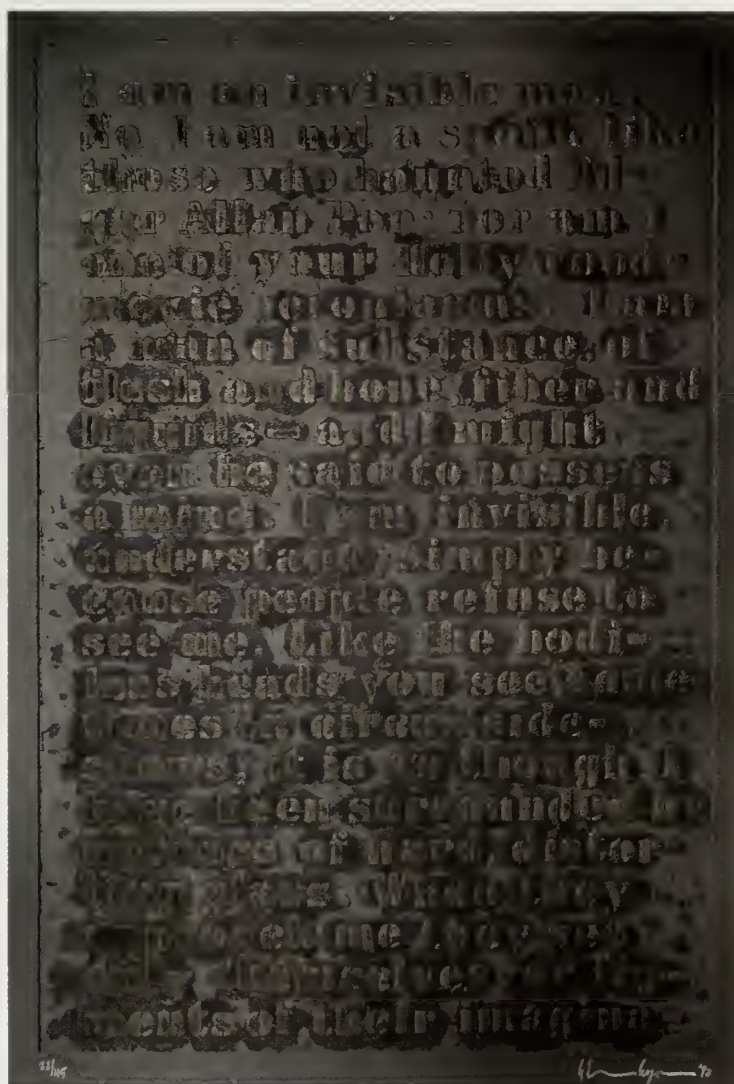 I am an invisible man.
No, I am not a spook like
those who haunted Ed-
gar Allan Poe; nor am I
one of your Hollywood-
movie ectoplasms. I am
a man of substance, of
flesh and bone, fiber and
liquids—and I might
even be said to possess
a mind. I am invisible,
understand, simply be-
cause people refuse to
see me. Like the bodi-
less heads you see some-
times in circus side-
shows, it is as though I
have been surrounded by
of hard, distor-
ting glass. When they
approach me they see
ments of their imagina-